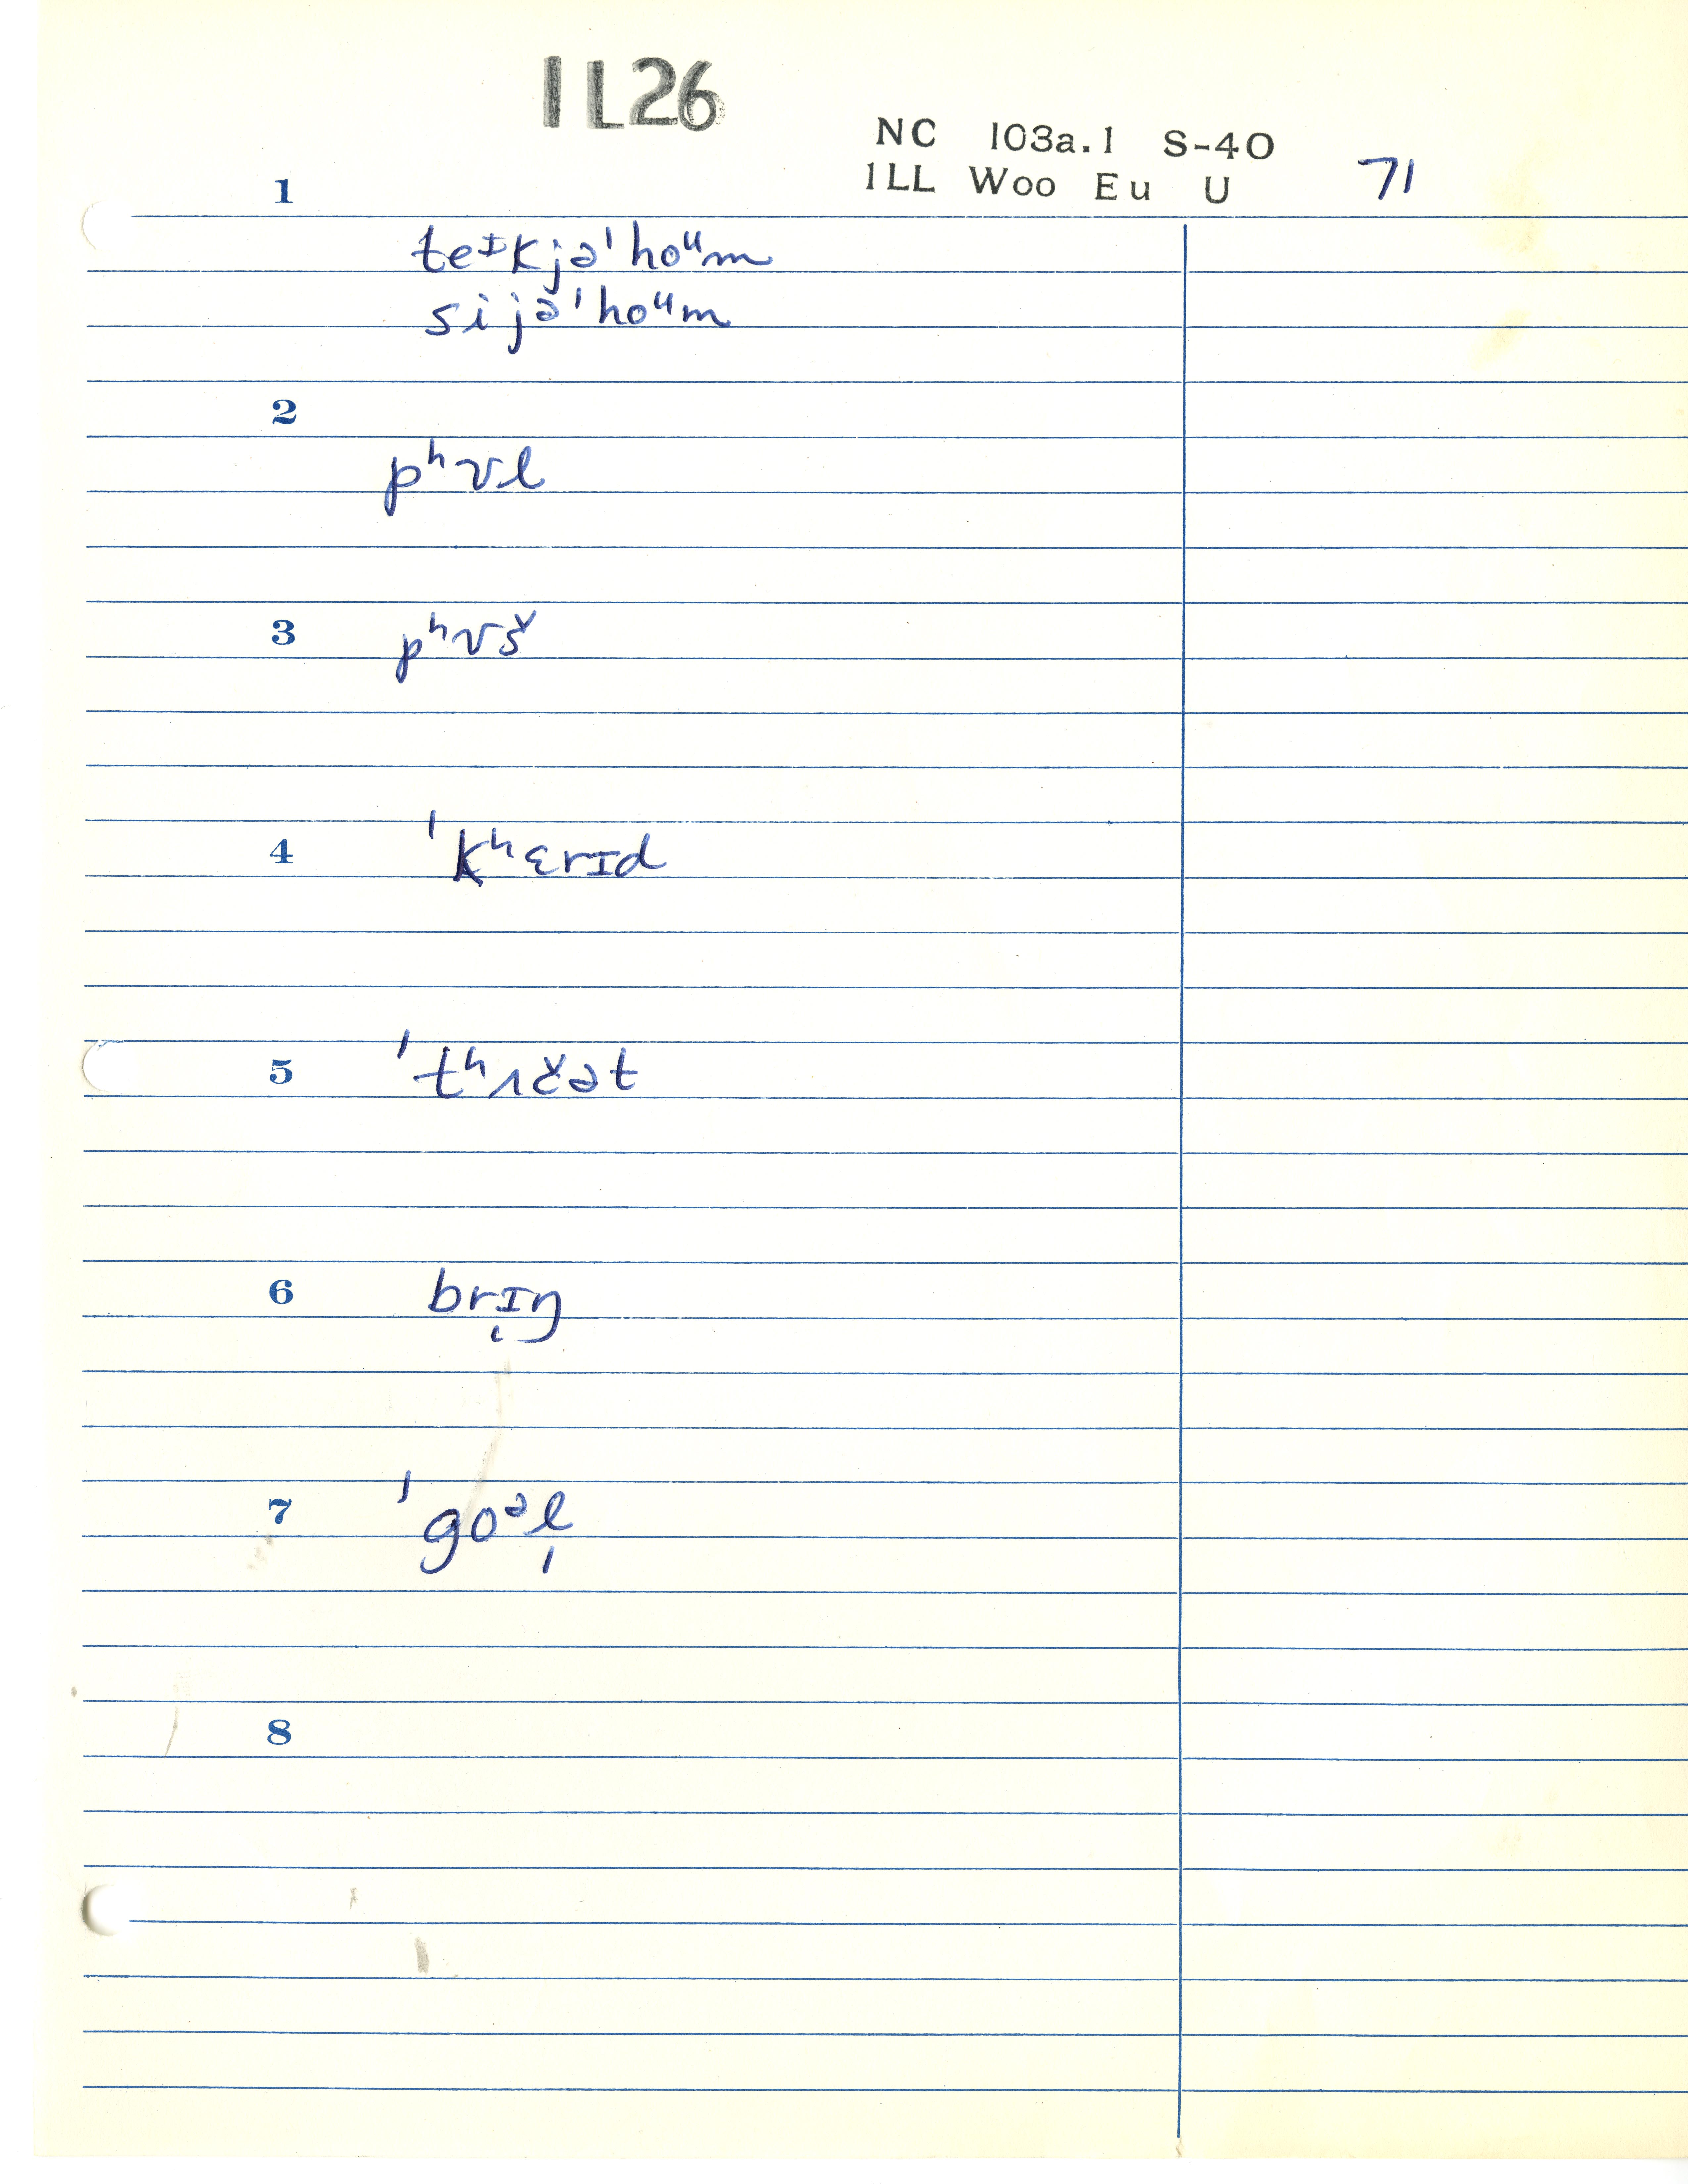 IL26
NC 103a.1 S-40
ILL Woo Eu U 71
1
teᶧkjəˈhoᵘm
sijəˈhoᵘm
2
pʰʊl
3
pʰʊš
4 ˈkʰɛrɪd
5 ˈtʰʌčət
6 brɪ̜ŋ
7 ˈgoᵊl̩
8